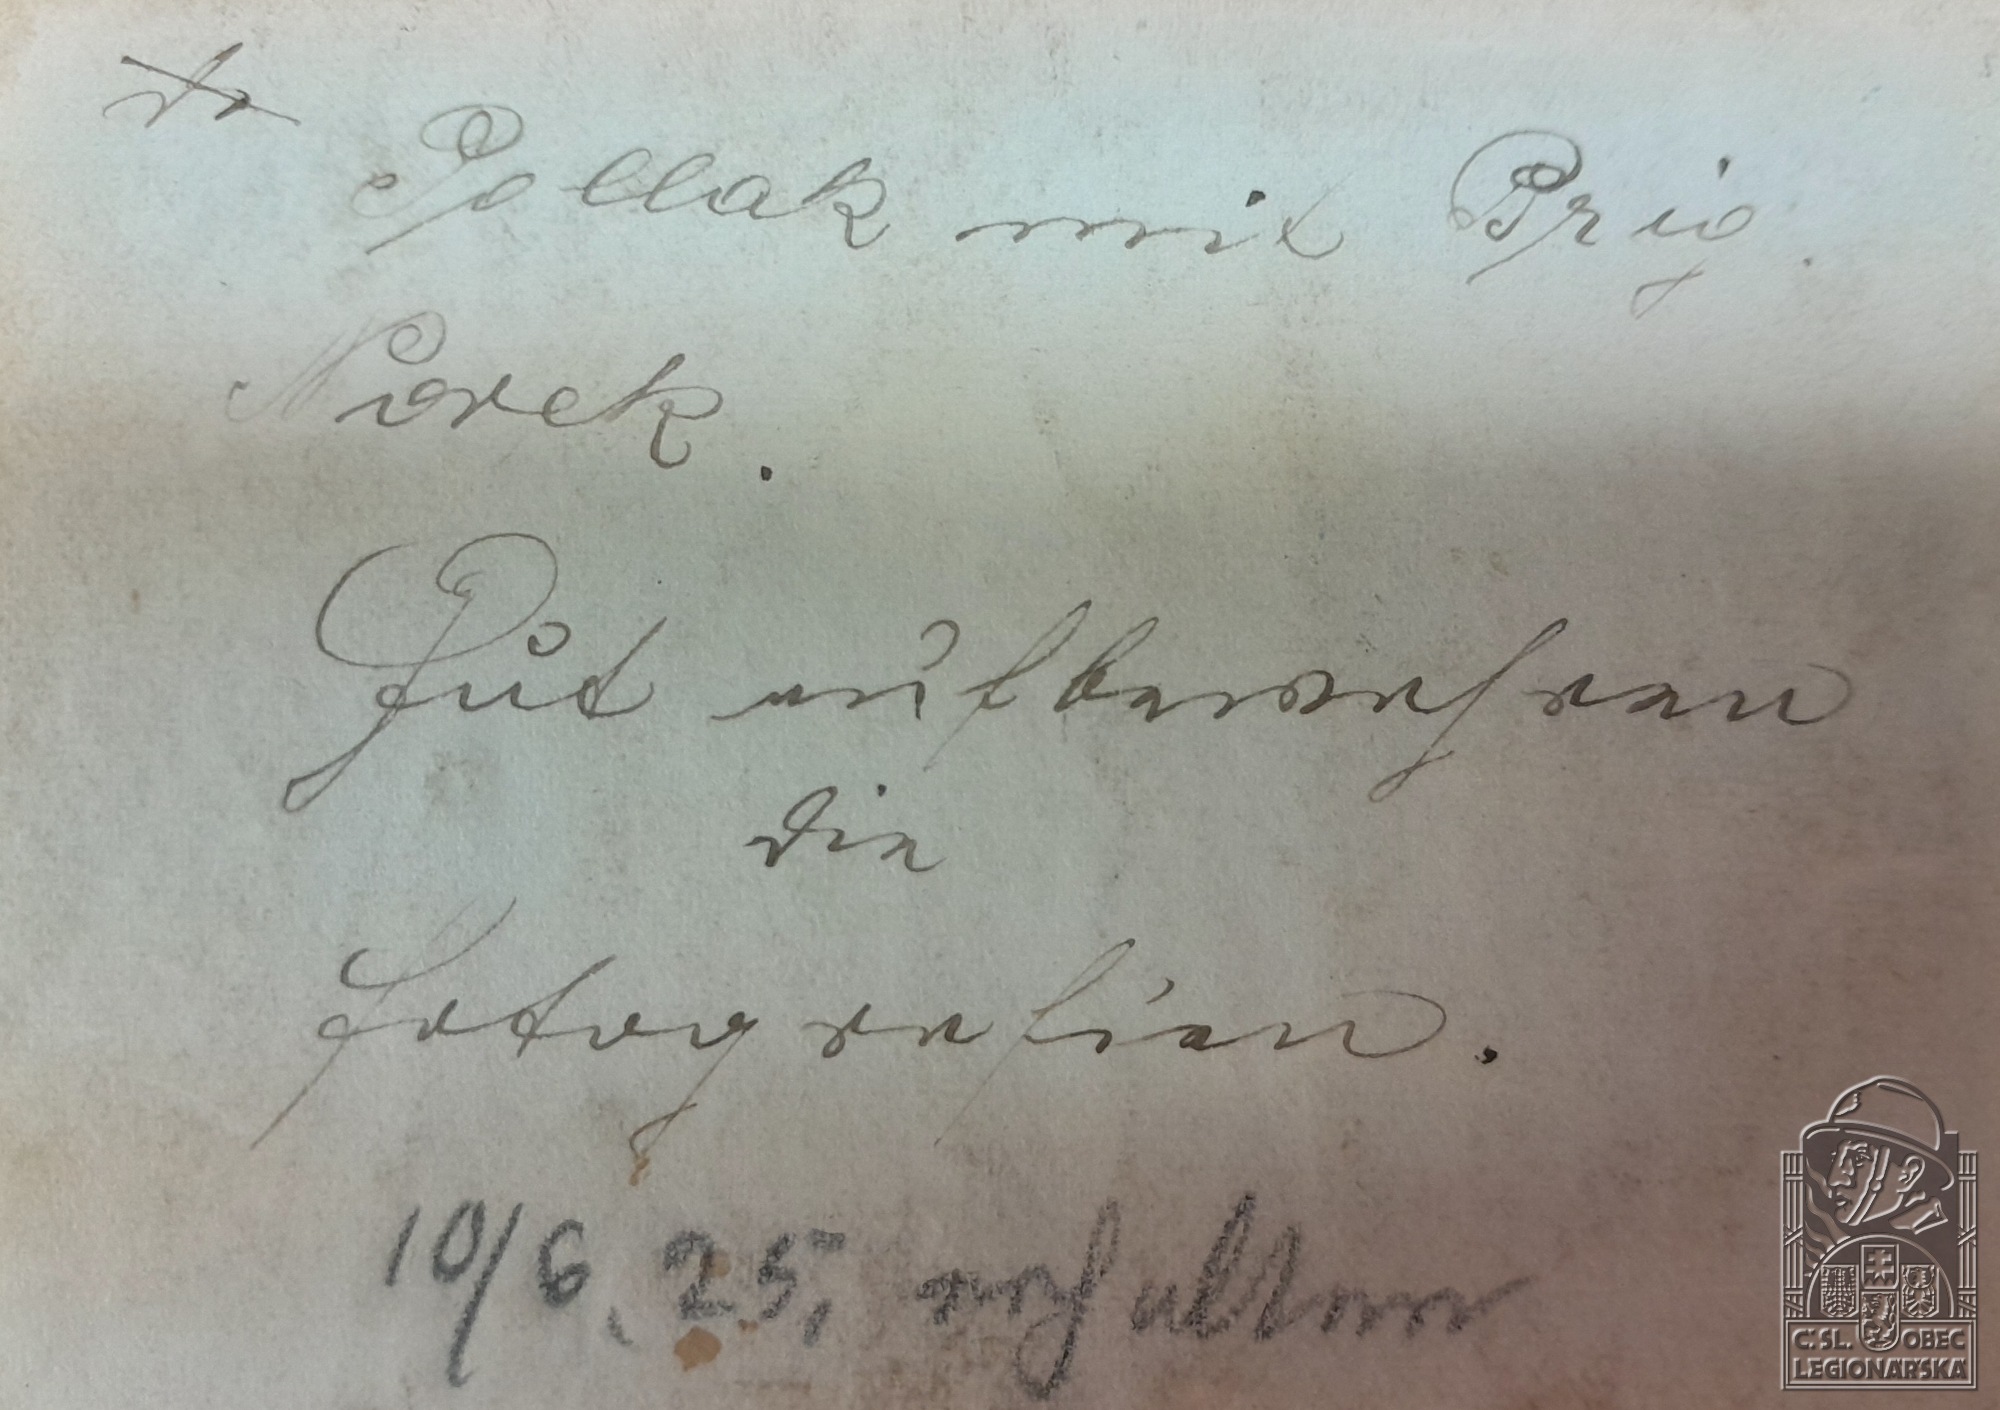 Pollak mit Brig.
Norek.
Gut aufbewahren
die
Fotografien.
10/6. 25, erhalten
Č. SL. OBEC
LEGIONÁŘSKÁ